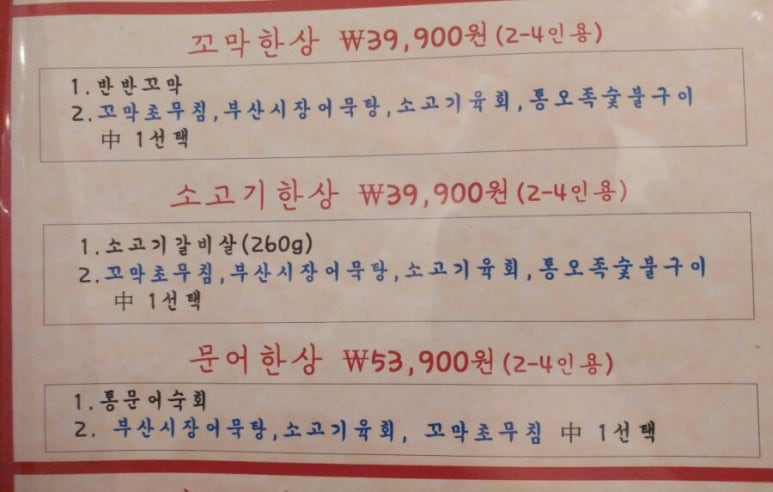 꼬막한상 ₩39,900원(2-4인용)
1.반반꼬막
2.꼬막초무침,부산시장어묵탕,소고기육회,통오족숯불구이
中 1선택
소고기한상 ₩39,900원(2-4인용)
1.소고기갈비살(260g)
2.꼬막초무침,부산시장어묵탕,소고기육회,통오족숯불구이
中 1선택
문어한상 ₩53,900원(2-4인용)
1.통문어숙회
2. 부산시장어묵탕,소고기육회, 꼬막초무침 中 1선택